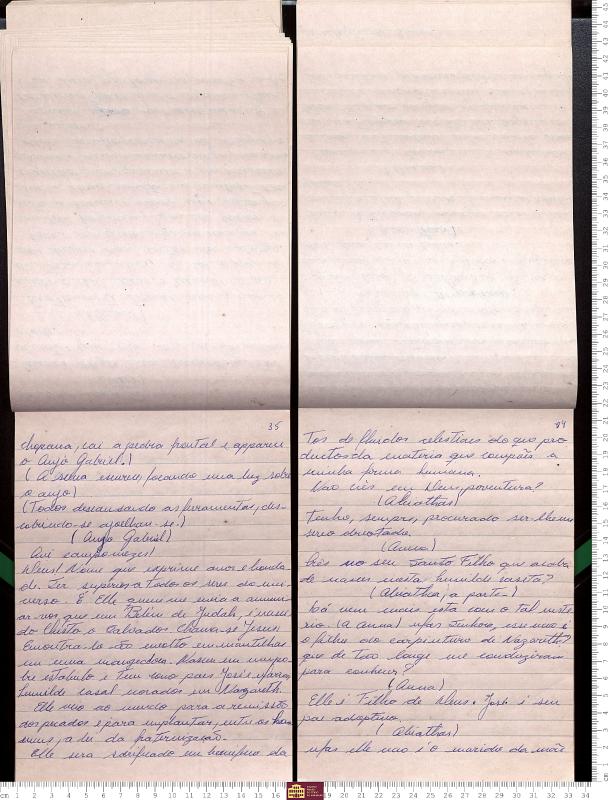 35
choupana, cai a pedra frontal e apparece
o Anjo Gabriel.)
(A scena escurece, focando uma luz sobre
o anjo)
(Todos descansando as ferramentas, des-
cobrindo-se ajoelham-se.)
(Anjo Gabriel)
Ave camponezes!
Deus! Nome que exprime amor e bonda-
de. Ser superior a todos os seres do uni-
verso. É Elle quem me envia a annun-
ciar-vos que em Belém de Judah, é nasci-
do Christo o Salvador. Chama-se Jesus.
Encontra-lo-ão envolto em mantilhas
em uma mangedoura. Nasceu em um po-
bre estabulo e tem como paes José e Maria,
humilde casal morador em Nazareth.
Elle veio ao mundo para a remissão
dos pecados e para implantar, entre os ho-
mens, a lei da fraternização.
Elle será sacrificado em beneficio da
tos de fluidos celestiaes do que pro-
ductos da materia que compõe a
minha forma humana.
Não crês em Deus, porventura?
(Abiathas)
Tenho, sempre, procurado ser-lhe um
servo devotado.
(Anna)
Crês no seu Santo Filho que acaba
de nascer nesta humilde caseta?
(Abiathas, a parte-)
Lá vem mais esta com o tal miste-
rio. (a Anna) Mas Senhora, esse não é
o filho do carpenteiro de Nazareth
que de tão longe me conduziram
para conhecer?
(Anna)
Elle é Filho de Deus. José é seu
pae adoptivo.
(Abiathas)
Mas elle não é o marido da mãe